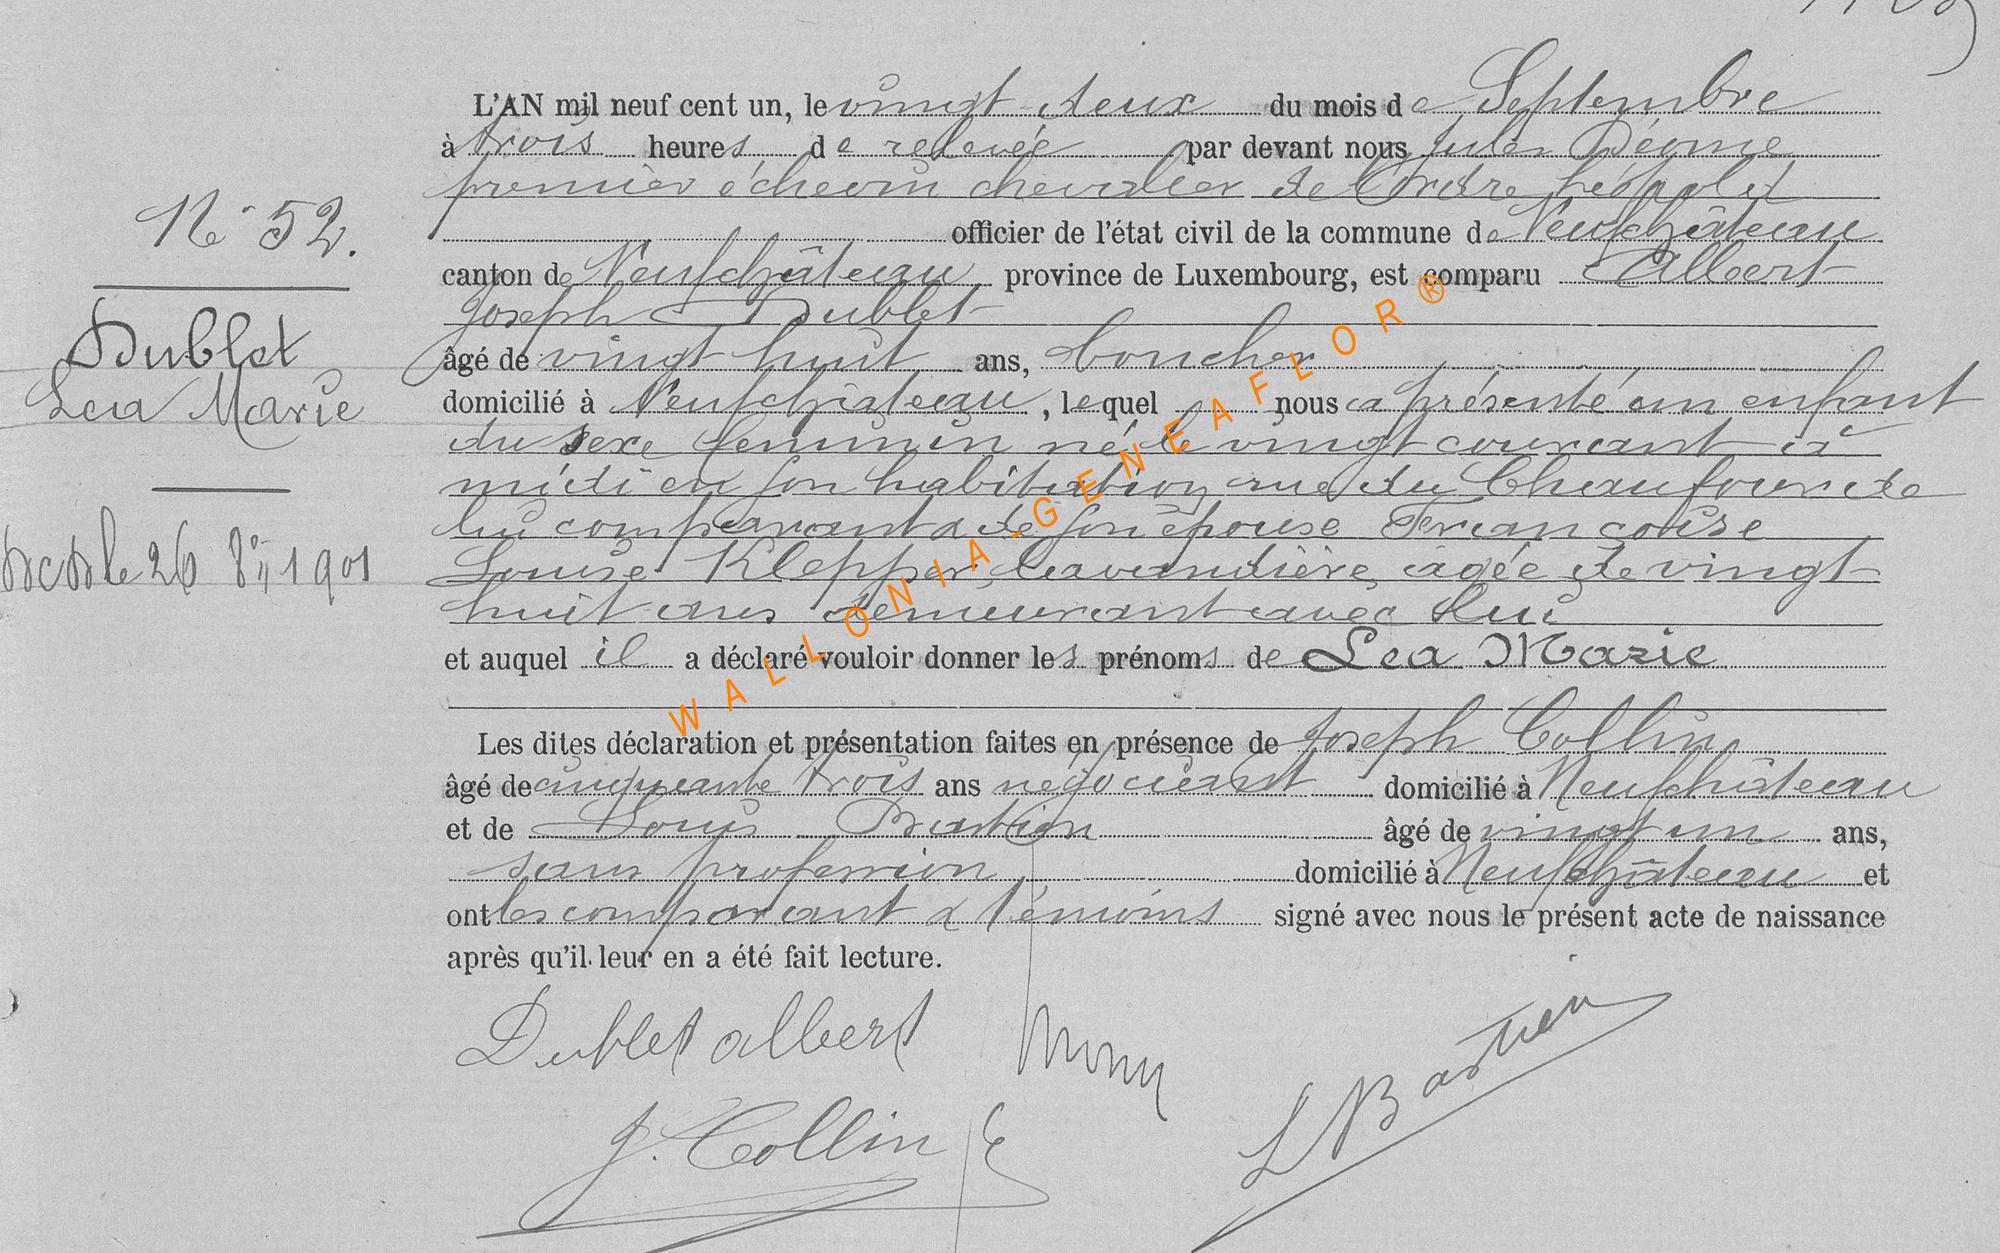 N° 52.
Dublet
Lea Marie
le 26 8bre 1901
L'AN mil neuf cent un, le vingt-deux du mois de Septembre
à trois heures de relevée par devant nous Jules
premier échevin chevalier de l'ordre Léopold
officier de l'état civil de la commune de Neufchâteau
canton de Neufchâteau province de Luxembourg, est comparu Albert
Joseph Dublet
âgé de vingt huit ans, boucher
domicilié à Neufchâteau, lequel nous a présenté un enfant
du sexe feminin né le vingt courant à
midi en son habitation rue du Chaufour de
lui comparant & de son épouse Françoise
Louise Klepper lavandière âgée de vingt
huit ans demeurant avec lui
et auquel il a déclaré vouloir donner les prénoms de Lea Marie
Les dites déclaration et présentation faites en présence de Joseph Collin
âgé de cinquante trois ans négociant domicilié à Neufchâteau
et de Louis Bastien âgé de vingt un ans,
sans profession domicilié à Neufchâteau et
ont les comparant & témoins signé avec nous le présent acte de naissance
après qu'il leur en a été fait lecture.
Dublet albert
J. Collin
L Bastien
WALLONIA-GENEAFLOR®